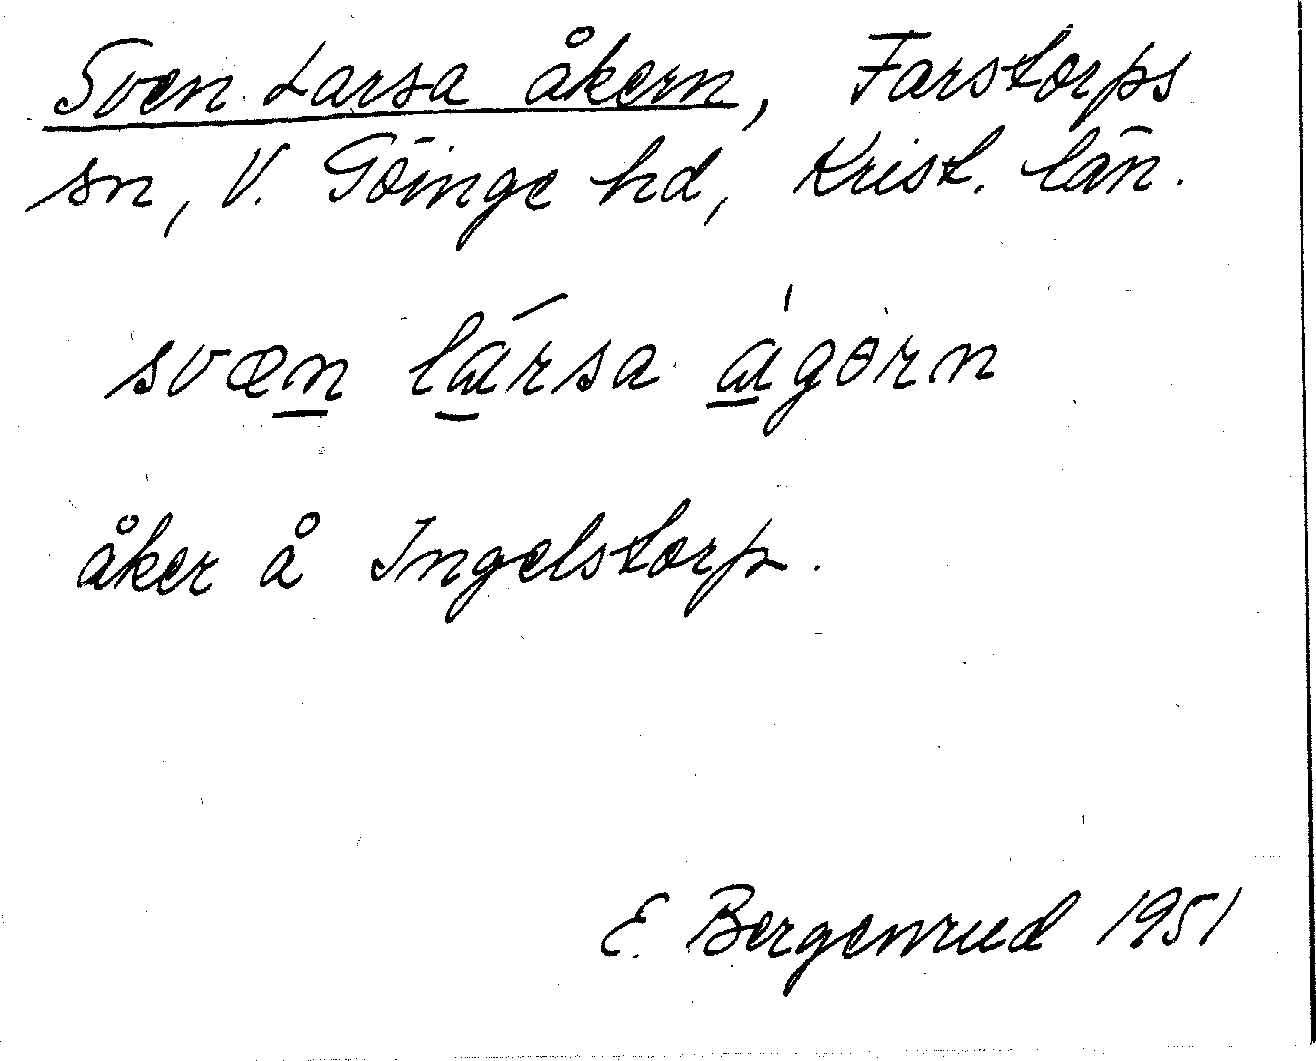 Sven Larsa åkern, Farstorps
sn, V. Göinge hd, Krist. län.
svæn lársa ágərn
åker å Ingelstorp.
E. Bergenrud 1951